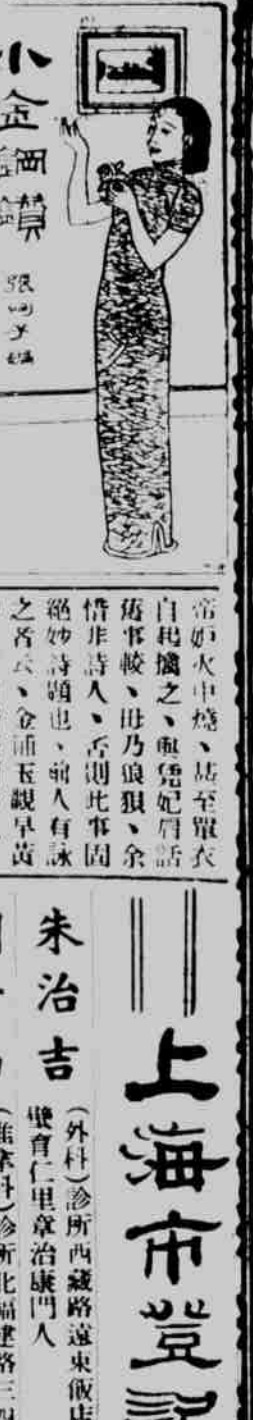 小金鋼鑽
張
帝妒火中燒、甚至單衣
自起擒之、與憑妃屑話
舊事較、毋乃狼狽、余
惜非詩人、否則此事固
絕妙詩題也、前人有詠
之者云、金玉早黃
上海市登記
朱治吉
(外科)診所西藏路遠東飯店
壁育仁里章治康門人
診所北福建路三